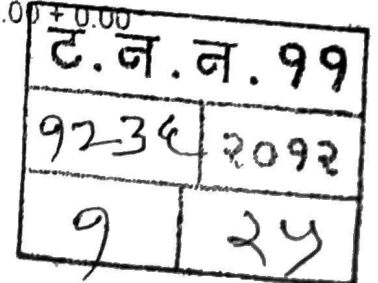 .00 + 0.00
ट. न. न. ११
१२३६ २०१२
१ २५